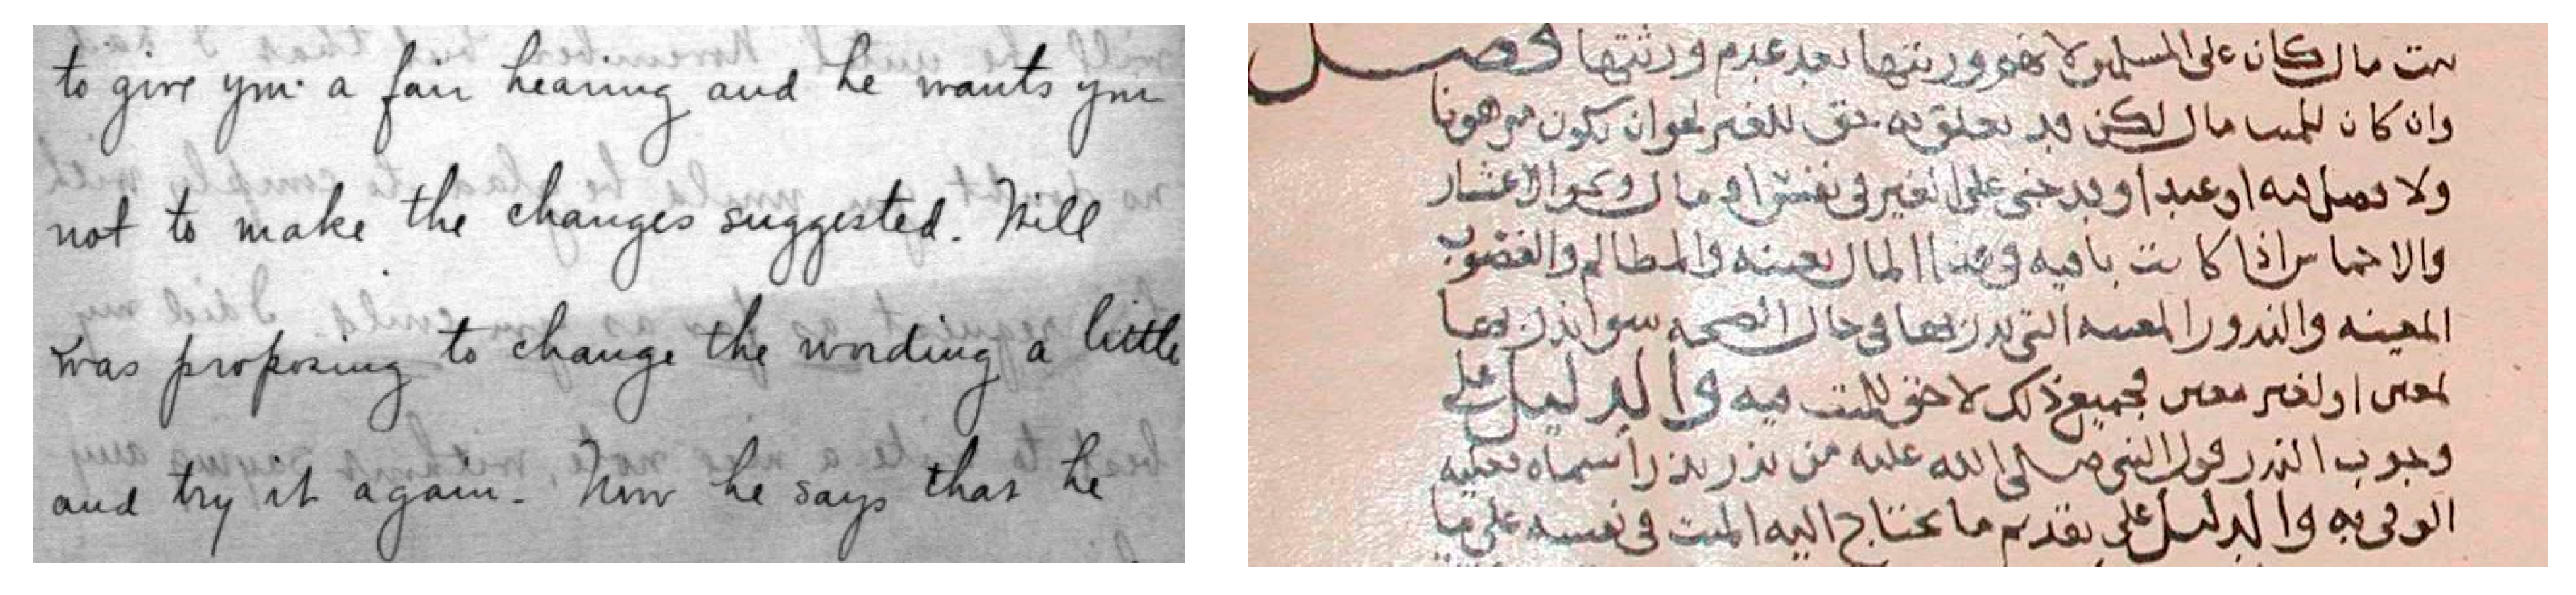 to give you a fair hearing and he wants you
not to make the changes suggested. Will
was proposing to change the wording a little
and try it again. Now he says that he
مال كان على المسلمين لا نحو ورثتها بعد عدم ورثتها فصل
وان كان للميت مال لكن قد تعلق به حق للغير نحو ان يكون مرهونا
ولا اوعبدا وقد جنى على الغير في نفس او مال ونحو الاعشار
والاخماس اذا كانت باقيه وهذا المال بعينه والمظالم والغصوب
المعينه والندور المعينه التي ندر بها في حال الصحه سوا ندر بها
لمعين او لغير معين فجميع ذلك لا حق للميت فيه والدليل على
وجوب الندر قول النبي صلى الله عليه من ندر ندرا سماه فعليه
الوفى به والدليل على تقديم ما يحتاج اليه الميت في نفسه على ما